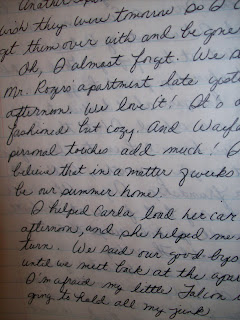 Another
wish they were tomorrow so I c
get them over with and be gone
Oh, I almost forgot. We s
Mr. Rogers apartment late yest
afternoon. We love it! It's o
fashioned but cozy. And Wayf
personal touches add much! I
believe that in a matter of weeks
be our summer home.
I helped Carla load her car
afternoon, and she helped me
turn. We said our good-byes
until we meet back at the apar
I'm afraid my little Falcon i
going to hold all my junk